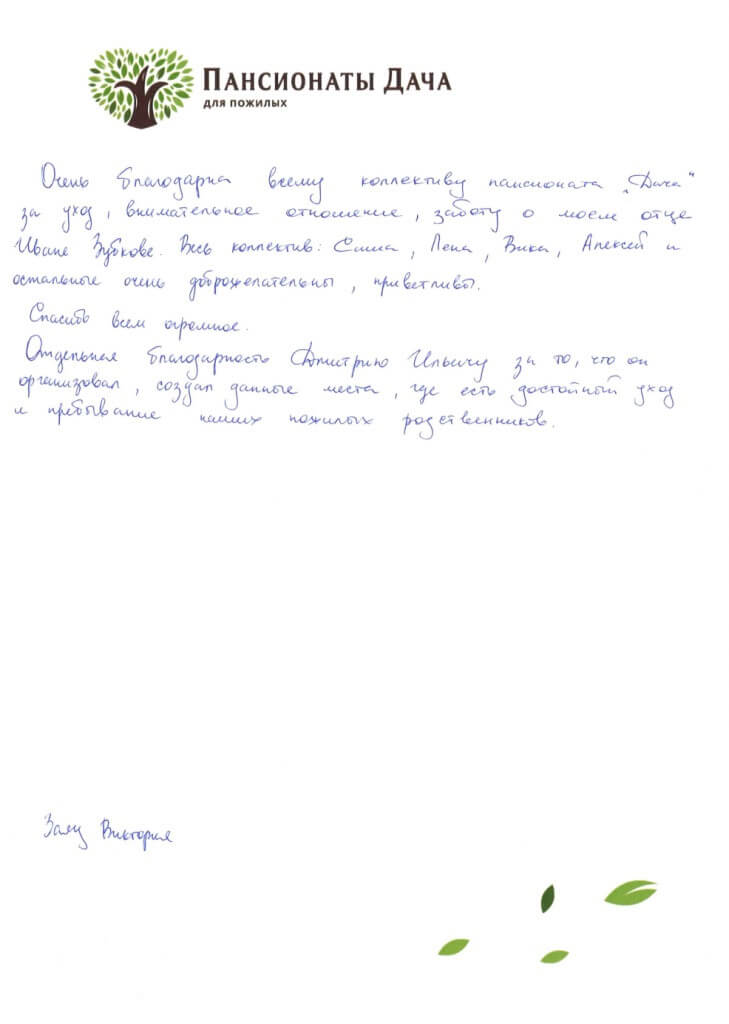 ПАНСИОНАТЫ ДАЧА
ДЛЯ ПОЖИЛЫХ
Очень благодарна всему коллективу пансионата „Дача"
за уход, внимательное отношение, заботу о моем отце
Иване Зубкове. Весь коллектив: Саша, Лена, Вика, Алексей и
остальные очень доброжелательны, приветливы.
Спасибо всем огромное.
Отдельная благодарность Дмитрию Ильичу за то, что он
организовал, создал данные места, где есть достойный уход
и пребывание наших пожилых родственников.
Заяц Виктория